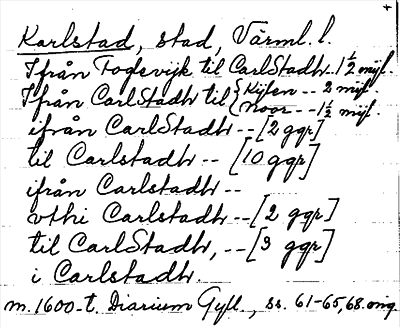 Karlstad, stad, Värml. l.
Ifrån Togevijk til CarlStadh.. 1½ mijl.
Ifrån CarlStadh til { Kijlen -- 2 mijl.
Noor -- 1½ mijl.
ifrån CarlStadh -- [2 ggr]
til Carlstadh -- [10 ggr]
ifrån Carlstadh --
vthi Carlstadh -- [2 ggr]
til CarlStadh, -- [3 ggr]
i Carlstadh.
m. 1600-t. Diarium Gyll., ss. 61-65, 68. orig.